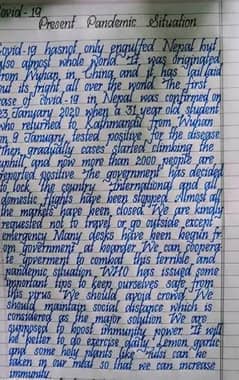 Covid-19
Present Pandemic Situation
Covid-19 hasnot only engulfed Nepal but
also almost whole world. It was originated
from Wuhan in China and it has laid
out its fright all over the world. The first
case of Covid-19 in Nepal was confirmed on
23 January 2020 when a 31 year old student
who returned to Kathmandu from Wuhan
on 9 January tested positive for the disease
Then gradually cases started climbing the
uphill and now more than 2000 people are
reported positive. The government has decided
to lock the country. International and all
domestic flights have been stopped. Almost all
the markets have been closed. We are kindly
requested not to travel or go outside except
emergency. Many have been
government at . We can coopera-
te goverment to combat this terrible and
pandemic situation. WHO has issued some
important tips to keep ourselves safe from
this virus. We should avoid crowd. We
should maintain social distance which is
considered as the major solution. We are
supposed to boost immunity power. It will
be better to do exercise daily. Lemon, garlic
and some holy plants like Tulsi can be
taken in our meal so that we can increase
immunity.